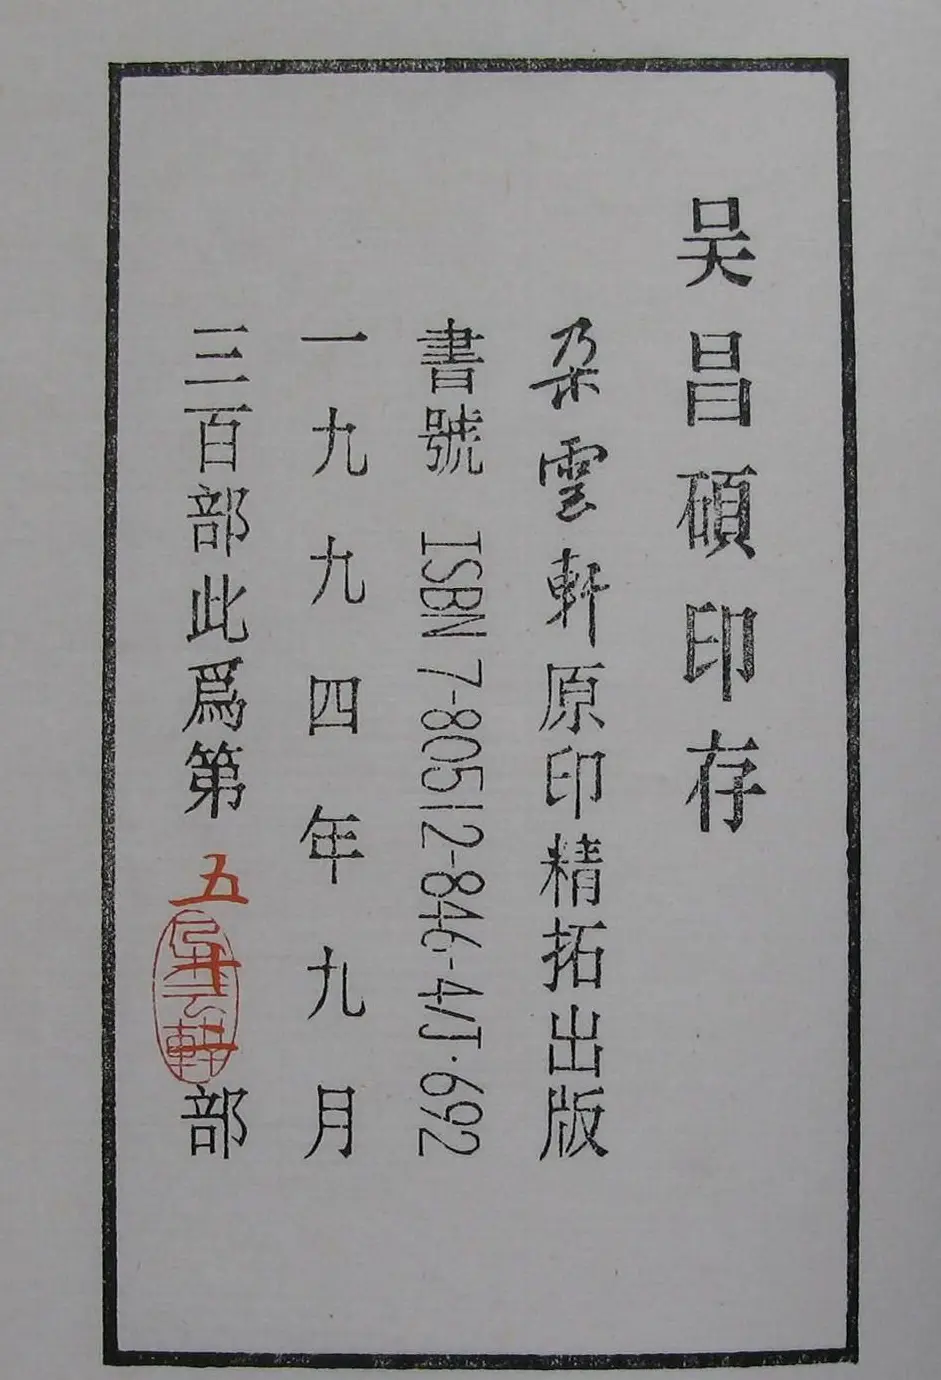 吴昌碩印存
朶雲軒原印精拓出版
書號 ISBN 7-80512-846-4/J·692
一九九四年九月
三百部此爲第五十一部